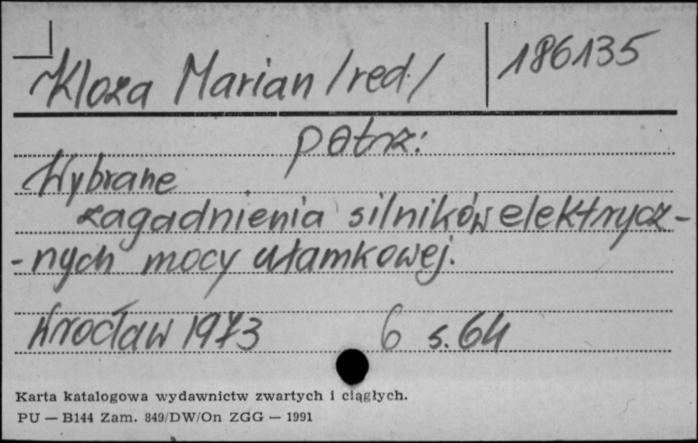 Kloza Marian /red./
186135
patrz:
Wybrane
zagadnienia silników elektrycz-
-nych mocy ułamkowej.
Wrocław 1973 6 s. 64
Karta katalogowa wydawnictw zwartych i ciągłych.
PU — B144 Zam. 849/DW/On ZGG — 1991